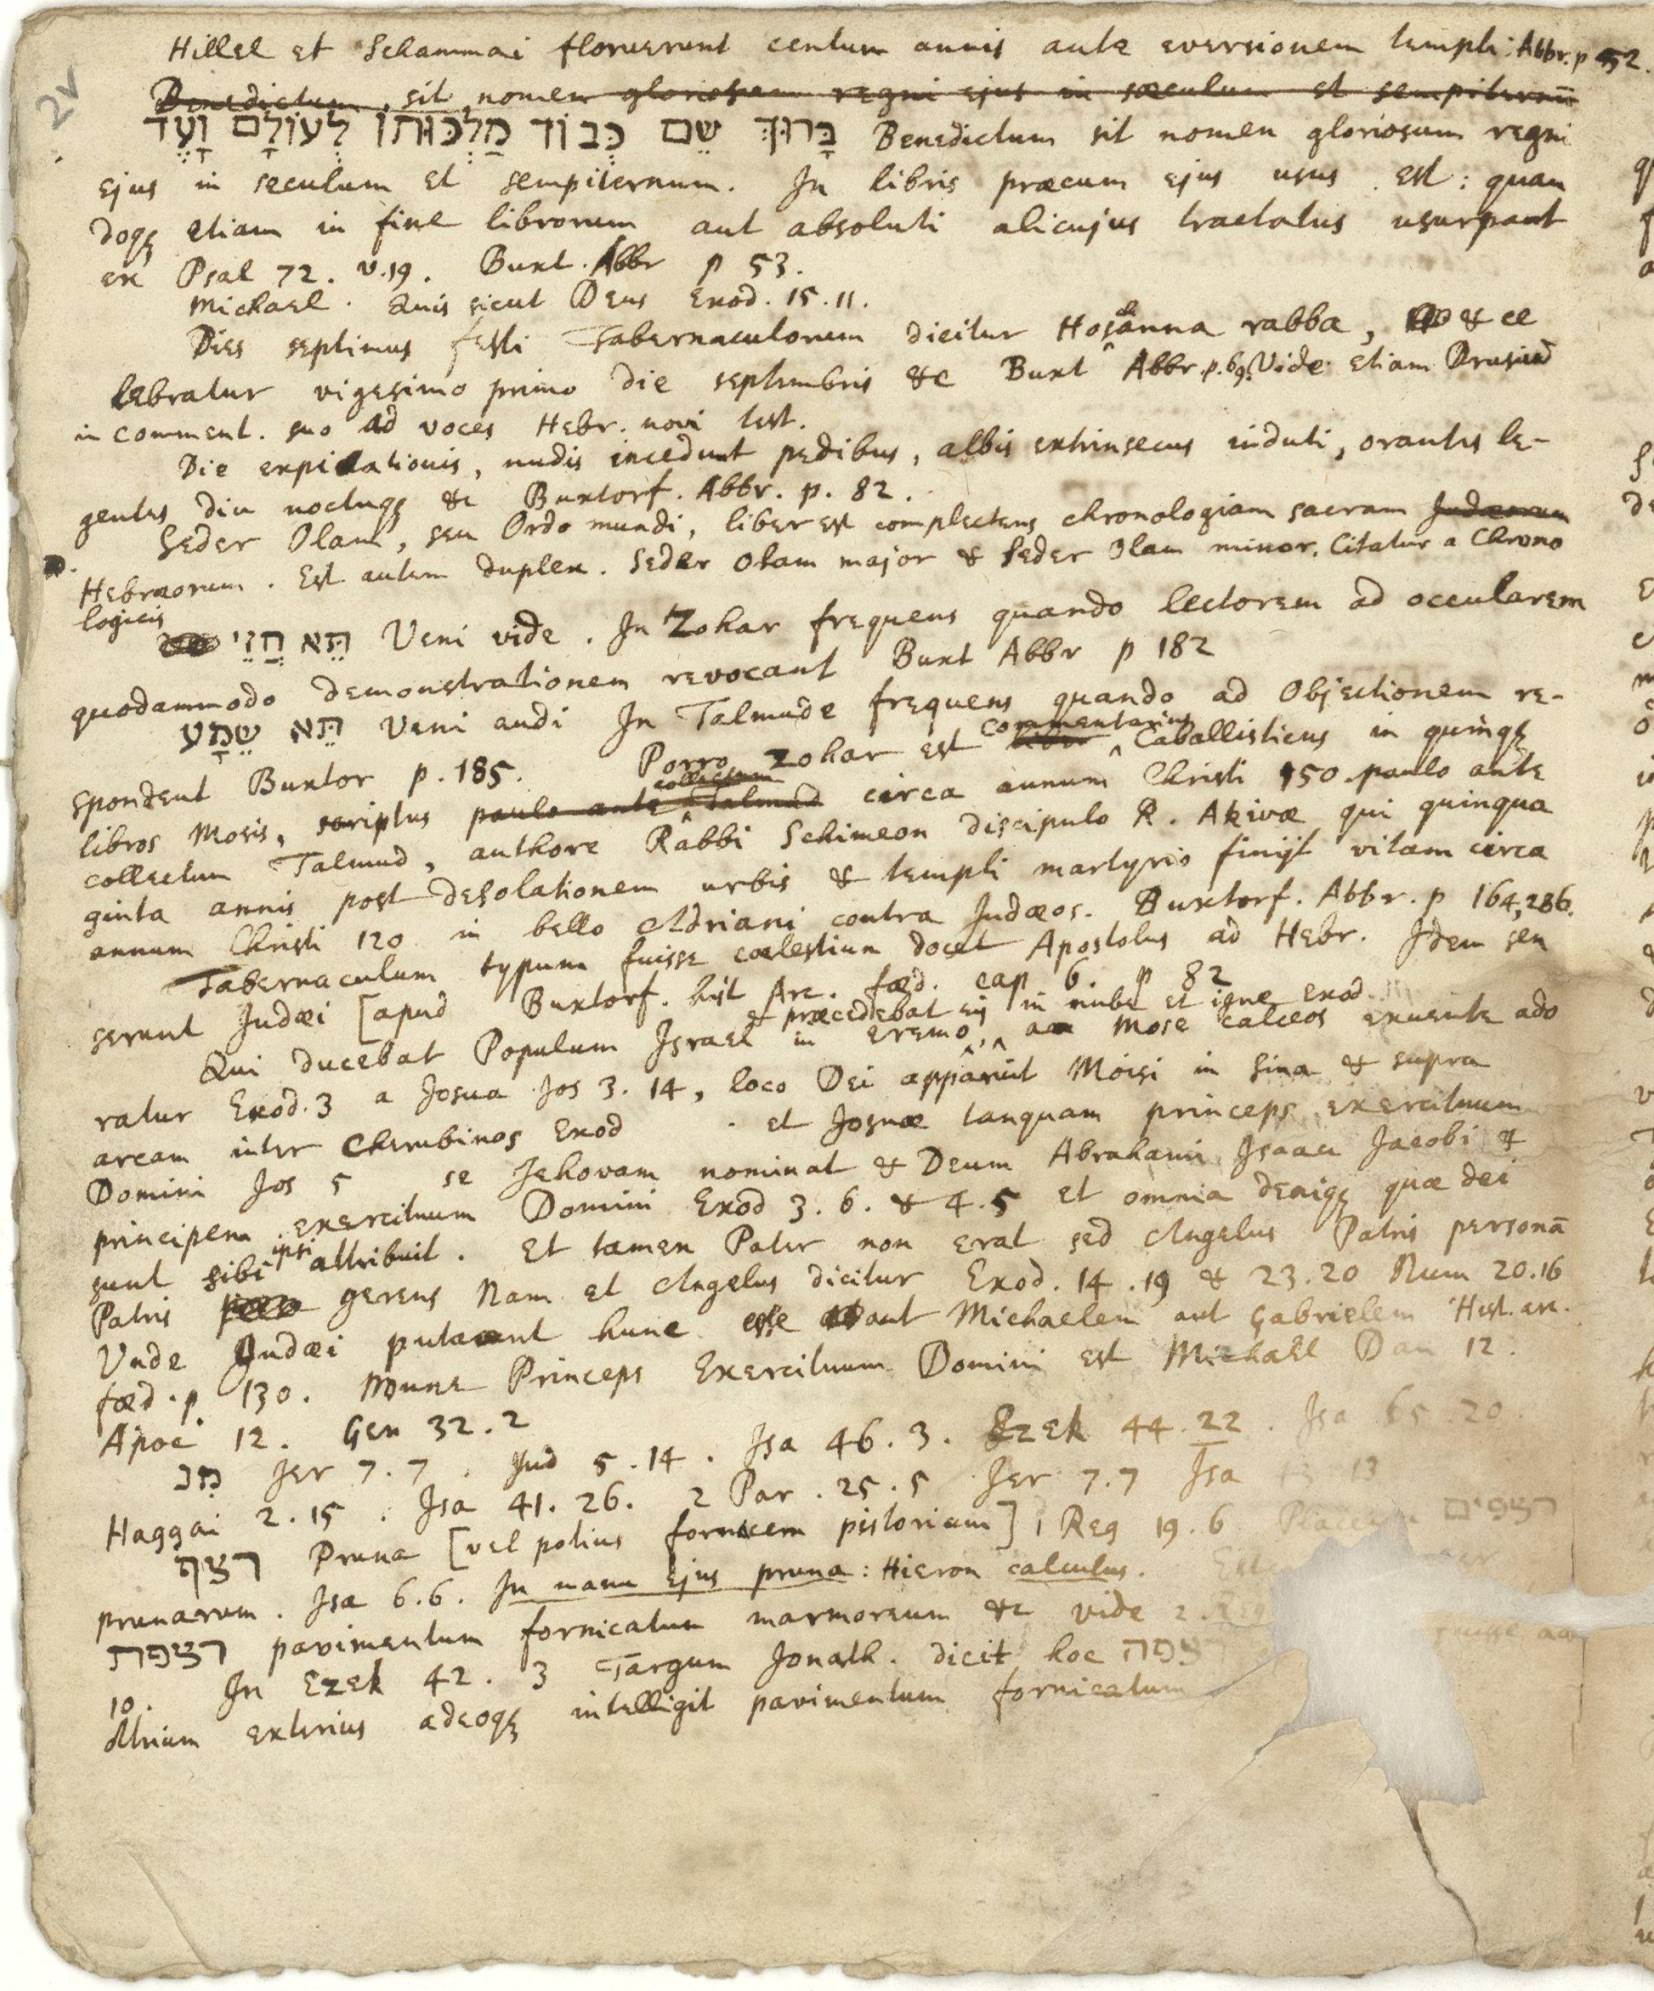 2v
Hillel et Schammai floruerunt centum annis ante eversionem templi: Abbr. p 52.
Benedictum sit nomen gloriosum regni ejus in sæculum et sempiternū
בָּרוּךְ שֵׁם כְּבוֹד מַלְכוּתוֹ לְעוֹלָם וָעֶד Benedictum sit nomen gloriosum regni
ejus in seculum et sempiternum. In libris præcum ejus usus est: quan
doqꝫ etiam in fine librorum aut absoluti alicujus tractatus usurpant
ex Psal 72. v.19. Buxt. Abbr p 53.
Michael. Quis sicut Deus Exod. 15.11.
Dies septimus festi Tabernaculorum dicitur Hosanna rabba, & ce
lebratur vigesimo primo die septembris &c Buxt Abbr. p. 69. Vide etiam Drusiū
in comment. suo ad voces Hebr. novi test.
Die expiationis, nudis incedunt pedibus, albis extrinsecus induti, orantes le-
gentes diu noctuqꝫ &c Buxtorf. Abbr. p. 82.
Seder Olam, seu Ordo mundi, liber est complectens chronologiam sacram Judæorum
Hebræorum. Est autem duplex. Seder olam major & Seder Olam minor. Citatur a Chrono
logicis
תֵּא חֲזֵי Veni vide. In Zohar frequens quando lectorem ad occularem
quodammodo demonstrationem revocant Buxt Abbr p 182
תֵּא שֵׁמָע Veni audi In Talmude frequens quando ad Objectionem re-
spondent Buxtor p. 185. Porro Zohar est liber ^commentarius Caballisticus in quinqꝫ
libros Mosis, scriptus paulo ante ^collectum Talmud circa annum Christi 150 paulo ante
collectum Talmud, authore Rabbi Schimeon discipulo R. Akivæ qui quinqua
ginta annis post desolationem urbis & templi martyrio finijt vitam circa
annum Christi 120 in bello Adriani contra Judæos. Buxtorf. Abbr. p 164, 286.
Tabernaculum typum fuisse cœlestium docet Apostolus ad Hebr. Idem sen
serunt Judæi [apud Buxtorf. hist Arc. fœd. cap 6. p 82
& præcedebat eū in nube et igne Exod
Qui ducebat Populum Israel in eremo, a Mose calceos exuente ado
ratur Exod. 3 a Josua Jos 3. 14, loco Dei apparuit Moisi in Sina & supra
arcam inter Cherubinos Exod . et Josuæ tanquam princeps exercituum
Domini Jos 5 se Jehovam nominat & Deum Abrahami Isaaci Jacobi &
principem exercituum Domini Exod 3. 6. & 4. 5 et omnia deniqꝫ quæ dei
sunt sibi ipsi attribuit. Et tamen Pater non erat sed Angelus Patris personā
Patris gerens Nam et Angelus dicitur Exod. 14. 19 & 23. 20 Num 20. 16
Unde Judæi putarent hunc esse aut Michaelem aut Gabrielem Hist. arc.
fœd. p 130. Nunc Princeps Exercituum Domini est Michael Dan 12.
Apoc 12. Gen 32. 2
מִן Jer 7. 7. Jud 5. 14. Isa 46. 3. Ezek 44. 22. Isa 65. 20.
Haggai 2. 15. Isa 41. 26. 2 Par. 25. 5 Jer 7. 7 Isa 13
רצף Pruna [vel potius fornicem pistoriam] 1 Reg 19. 6 Placenta רצפים
prunarum. Isa 6. 6. In manu ejus pruna: Hieron calculus.
רצפת pavimentum fornicatum marmoreum &c vide 2. Reg
10. In Ezek 42. 3 Targum Jonath. dicit hoc רצפה
Atrium exterius adeoqꝫ intelligit pavimentum fornicatum